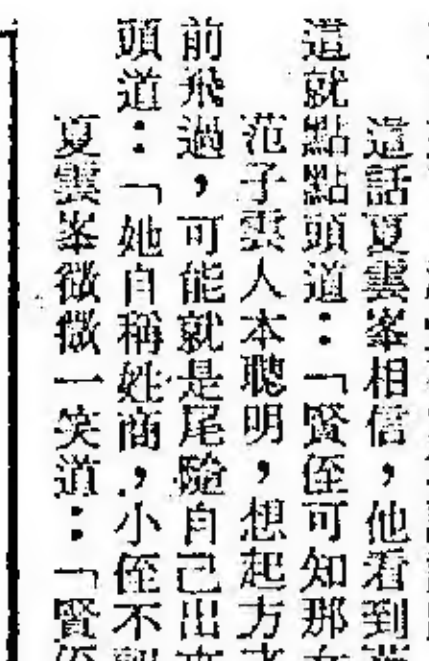 這話夏雲峯相信，他看到
這就點點頭道：「賢侄可知那
范子雲人本聰明，想起方才
前飛過，可能就是尾隨自己出
頭道：「她自稱姓商，小侄不
夏雲峯微微一笑道：「賢侄